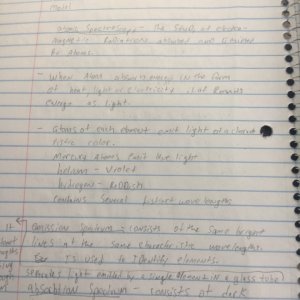 model
atomic Spectroscopy - The Study of electro-
magnetic Radiations absorbed and Emitted
by Atoms.
- When Atom absorbs energy in the form
of heat, light or electricity, it Re
energy as light.
- Atoms of each element emit light of a charac
ristic color.
Mercury Atoms Emit blue light
helium - Violet
hydrogen - Reddish
contains several distinct wavelengths
emission Spectrum - consists of the same bright
lines at the same characteristic wavelengths.
Is used to Identify elements.
light emitted by a single element in a glass tube
Absorbtion Spectrum - consists of dark